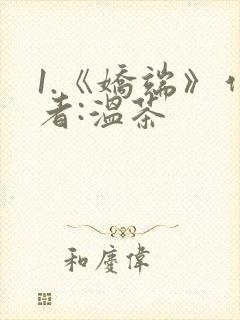 1.《嬌端》
者:溫茶
和慶偉